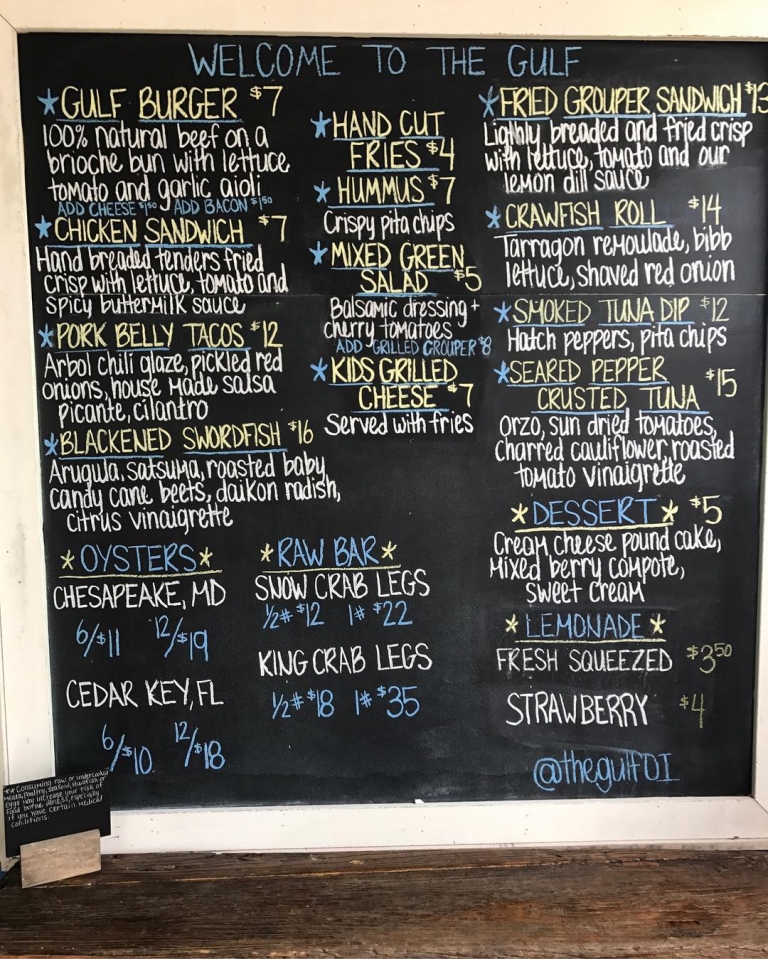 WELCOME TO THE GULF
*GULF BURGER $7
100% natural beef on a
brioche bun with lettuce
tomato and garlic aioli
ADD CHEESE $1.50 ADD BACON $1.50
*CHICKEN SANDWICH $7
Hand breaded tenders fried
crisp with lettuce, tomato and
spicy buttermilk sauce
*PORK BELLY TACOS $12
Arbol chili glaze, pickled red
onions, house made salsa
picante, cilantro
*BLACKENED SWORDFISH $16
Arugula, satsuma, roasted baby
candy cane beets, daikon radish,
citrus vinaigrette
*HAND CUT
FRIES $4
*HUMMUS $7
Crispy pita chips
*MIXED GREEN
SALAD $5
Balsamic dressing +
cherry tomatoes
ADD GRILLED GROUPER $8
*KIDS GRILLED
CHEESE $7
Served with fries
*FRIED GROUPER SANDWICH $13
Lightly breaded and fried crisp
with lettuce, tomato and our
lemon dill sauce
*CRAWFISH ROLL $14
Tarragon remoulade, bibb
lettuce, shaved red onion
*SMOKED TUNA DIP $12
Hatch peppers, pita chips
*SEARED PEPPER
CRUSTED TUNA $15
Orzo, sun dried tomatoes,
charred cauliflower, roasted
tomato vinaigrette
*DESSERT* $5
Cream cheese pound cake,
mixed berry compote,
sweet cream
*OYSTERS*
CHESAPEAKE, MD
6/$11 12/$19
CEDAR KEY, FL
6/$10 12/$18
*RAW BAR*
SNOW CRAB LEGS
1/2# $12 1# $22
KING CRAB LEGS
1/2# $18 1# $35
*LEMONADE*
FRESH SQUEEZED $3.50
STRAWBERRY $4
@thegulfOI
** Consuming raw or undercooked
meats, poultry, seafood, shellfish or
eggs may increase your risk of
food borne illness, especially
if you have certain medical
conditions.